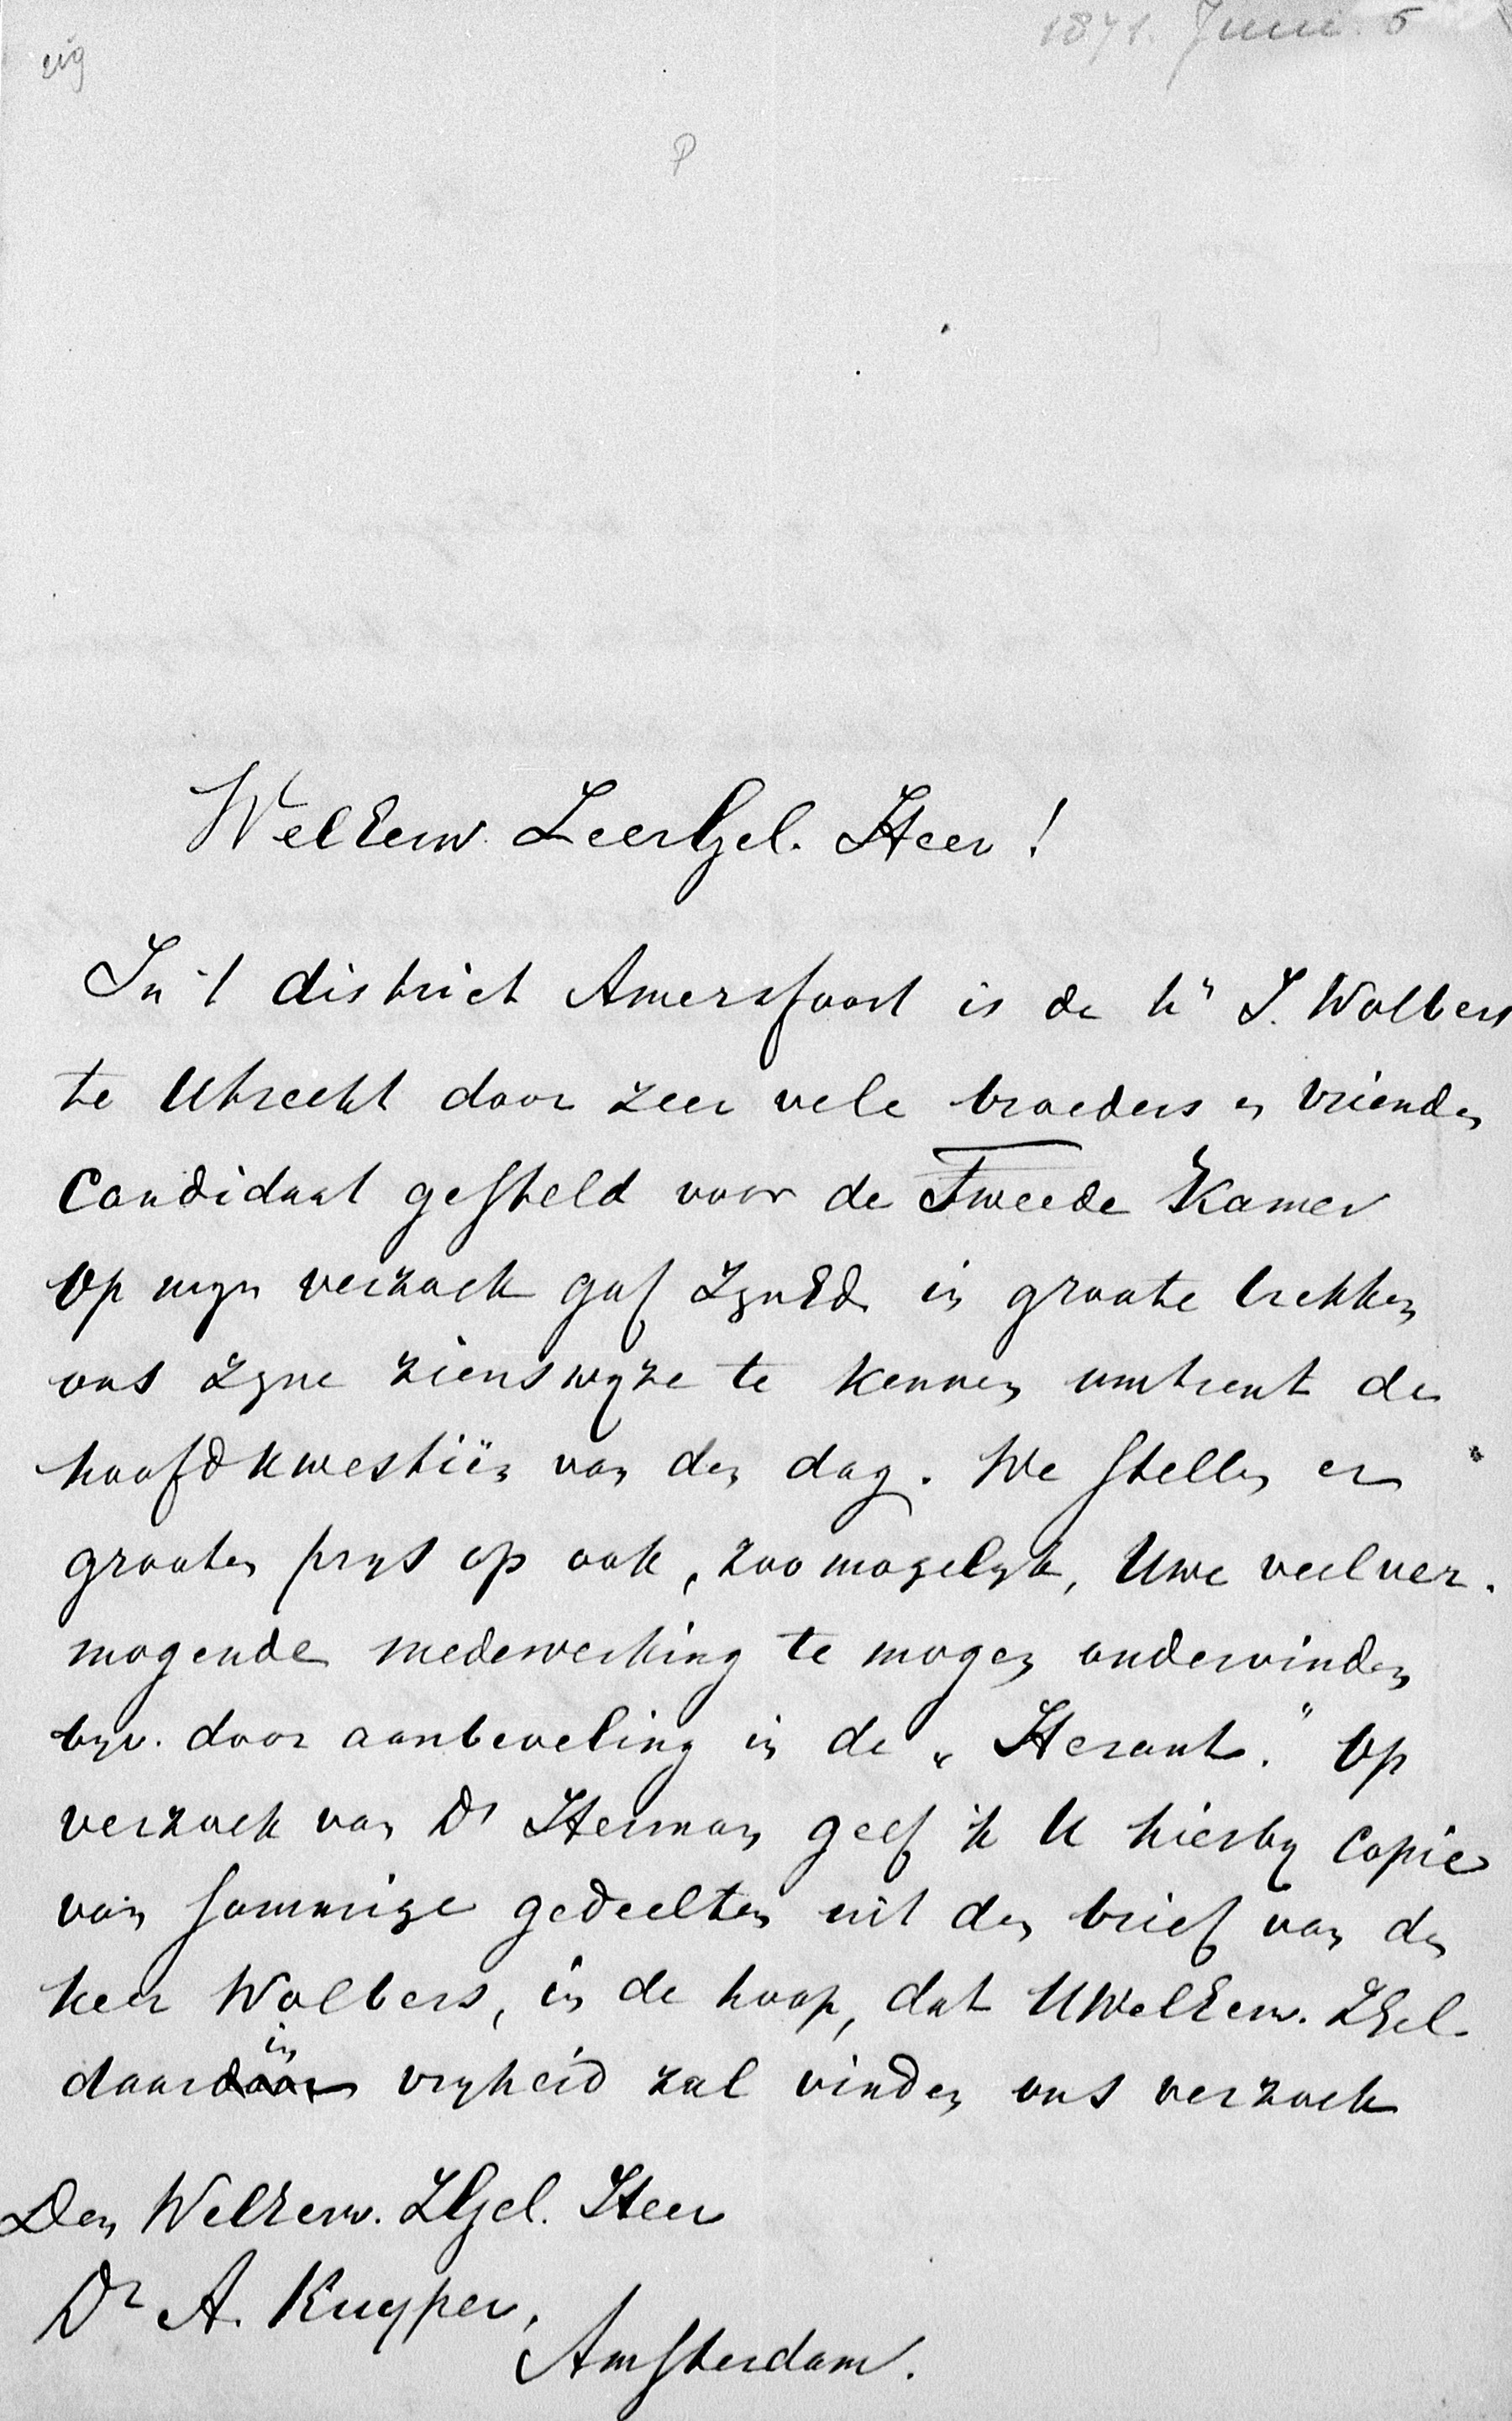 1871. Juni. 5
eig
P
WelEerw. ZeerGel. Heer!
In 't district Amersfoort is de hr J. Wolbers
te Utrecht door zeer vele broeders en vrienden
Candidaat gesteld voor de Tweede Kamer
Op mijn verzoek gaf ZijnEd. in groote trekken
ons zijne zienswijze te kennen omtrent de
hoofdkwestiën van den dag. We stellen er
grooten prijs op ook, zoo mogelijk, Uwe veelver-
mogende medewerking te mogen ondervinden
bijv. door aanbeveling in de „Heraut." Op
verzoek van Dr Herman geef ik U hierbij Copie
van sommige gedeelten uit den brief van den
heer Wolbers, in de hoop, dat UWelEerw. ZGel.
in
daardoor vrijheid zal vinden ons verzoek
Den WelEerw. ZGel. Heer
Dr A. Kuyper,
Amsterdam.